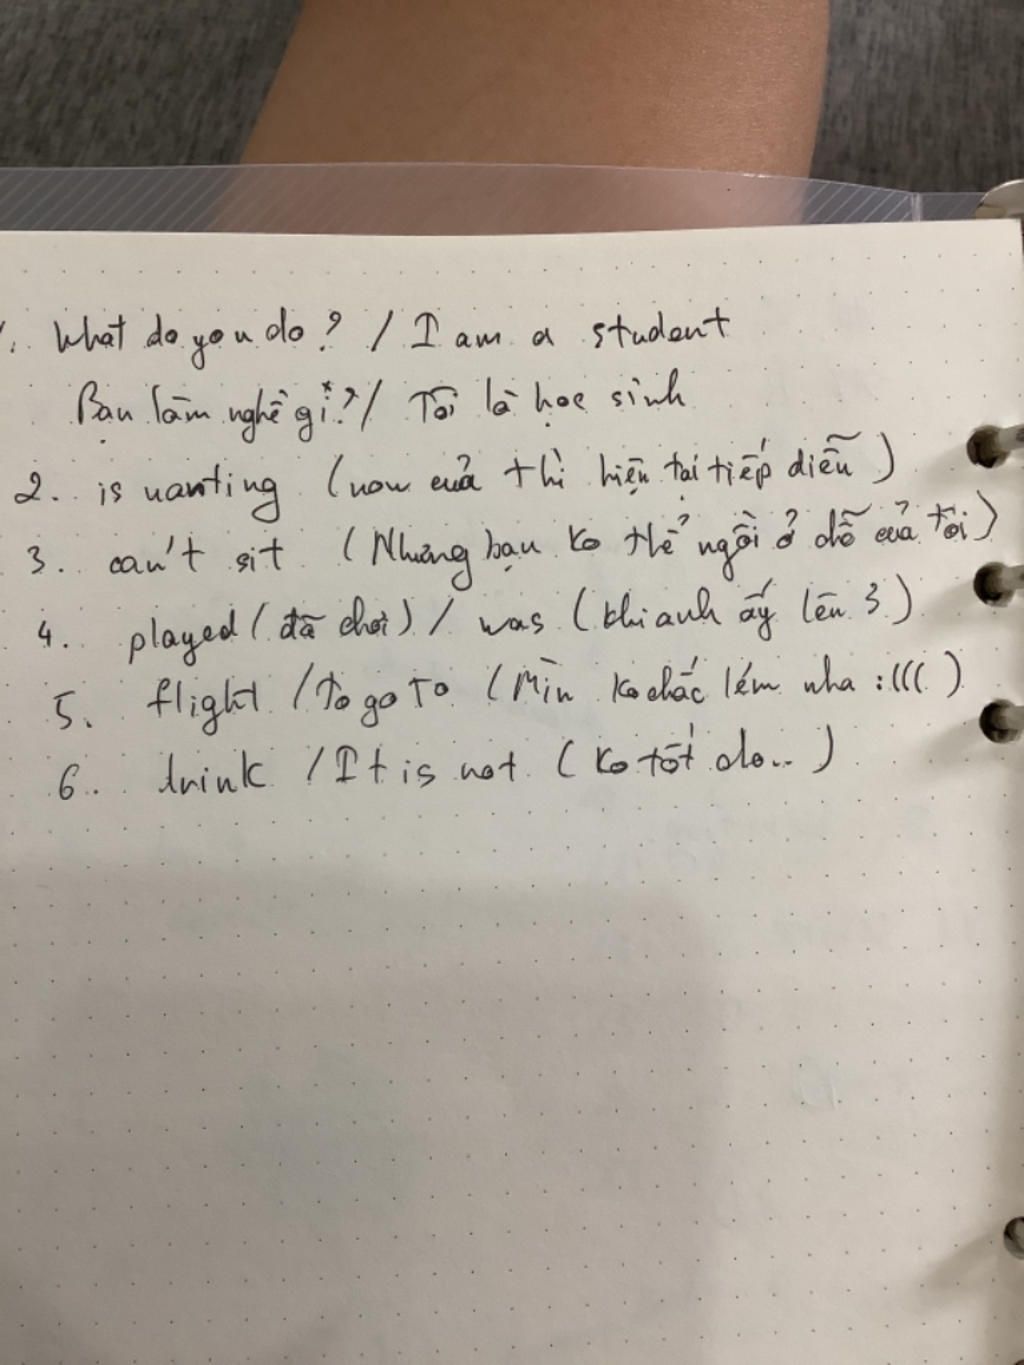 1. What do you do? / I am a student
Bạn làm nghề gì? / Tôi là học sinh
2. is wanting (now của thì hiện tại tiếp diễn)
3. can't sit (Nhưng bạn ko thể ngồi ở chỗ của tôi)
4. played (đã chơi) / was (khi anh ấy lên 3)
5. flight / To go to (Mìn ko chắc lém nha :((( )
6. drink / It is not (ko tốt do.. )